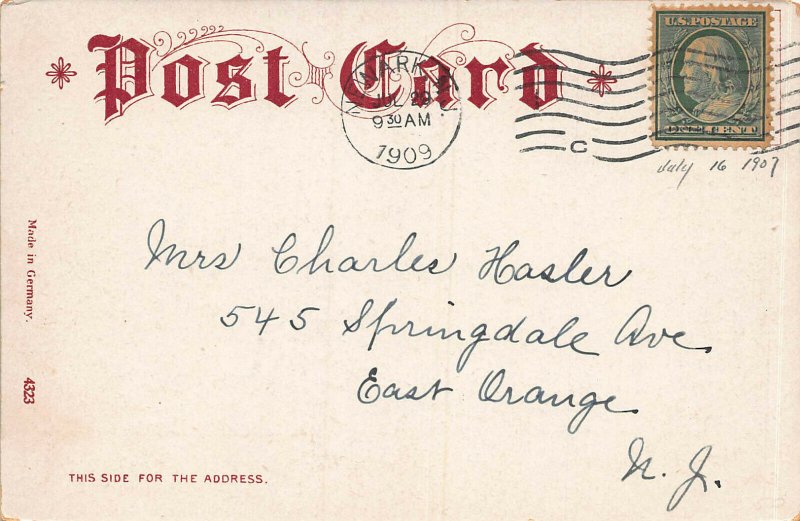 Post Card
U.S. POSTAGE
ONE CENT
NEWARK, N.J.
JUL 29
9 30 AM
1909
C
July 16 1907
Made in Germany.
4323
Mrs Charles Hasler
545 Springdale Ave.
East Orange
N. J.
THIS SIDE FOR THE ADDRESS.